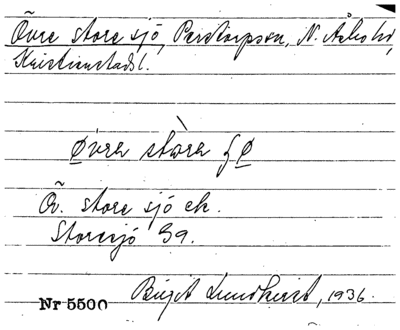 Övre store sjö, Perstorpssn, N. Åsbo hd,
Kristianstads l.
Øvrə stòrə ʃø
Ö. store sjö ek.
Storesjö Ga.
Birgit Lundkvist, 1936.
Nr 5500